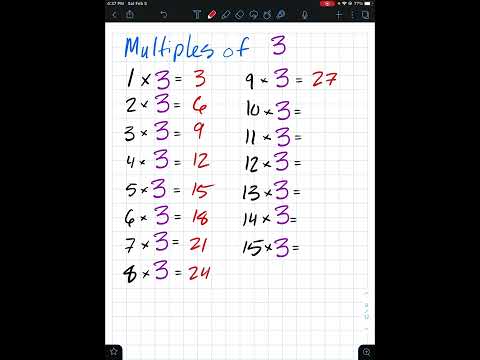 4:37 PM Sat Feb 5
77%
Multiples of 3
1 × 3 = 3
2 × 3 = 6
3 × 3 = 9
4 × 3 = 12
5 × 3 = 15
6 × 3 = 18
7 × 3 = 21
8 × 3 = 24
9 × 3 = 27
10 × 3 =
11 × 3 =
12 × 3 =
13 × 3 =
14 × 3 =
15 × 3 =